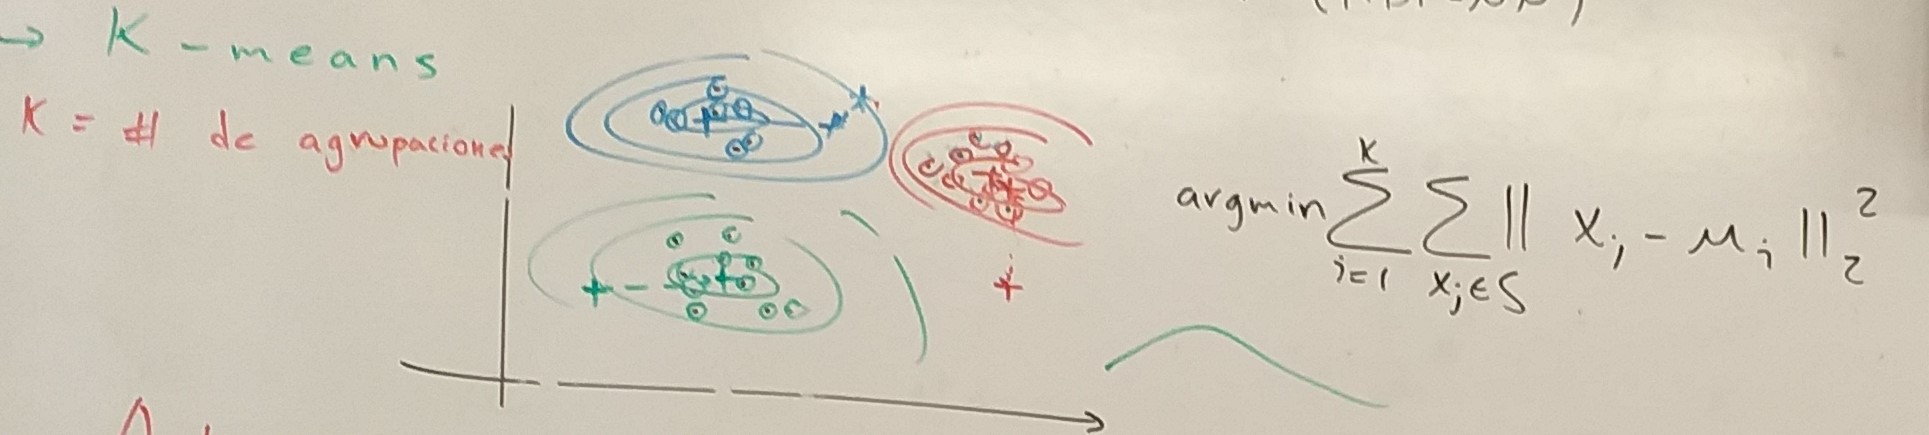 → K - means
K = # de agrupaciones
argmin K Σ i=1 Σ xj∈S || xj - μi ||₂²